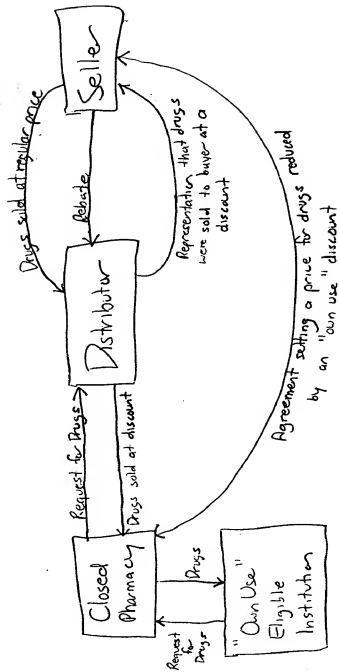 Seller
Drugs sold at regular price
Rebate
Representation that drugs
were sold to buyer at a
discount
Distributor
Request for Drugs
Drugs sold at discount
Agreement setting a price for drugs reduced
by an "own use" discount
Closed
Pharmacy
Drugs
Request
for
Drugs
"Own Use"
Eligible
Institution